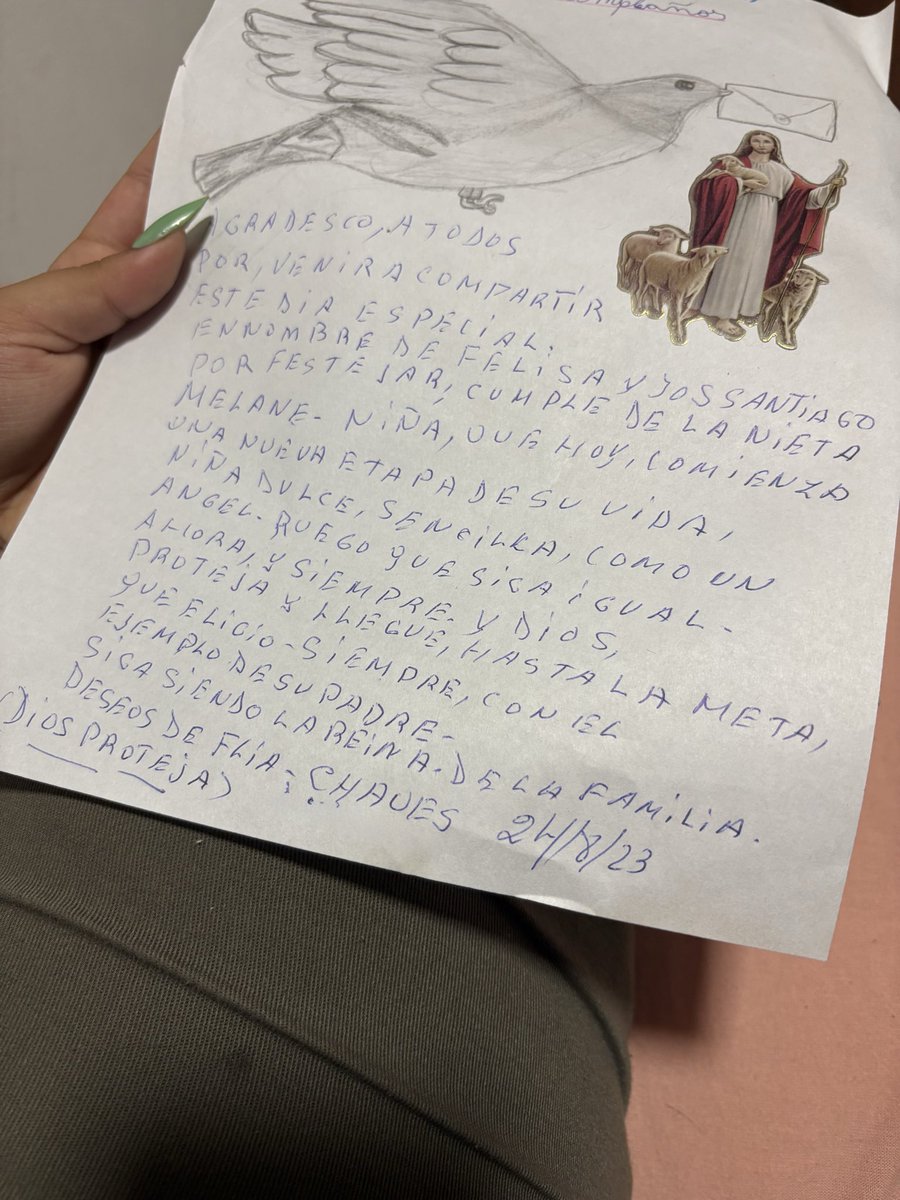 AGRADESCO, A TODOS
POR, VENIR A COMPARTIR
ESTE DIA ESPECIAL.
EN NOMBRE DE FELISA Y JOS SANTIAGO
POR FESTEJAR, CUMPLE DE LA NIETA
MELANE - NIÑA, QUE HOY, COMIENZA
UNA NUEVA ETAPA DE SU VIDA,
NIÑA DULCE, SENCILLA, COMO UN
ANGEL - RUEGO QUE SIGA IGUAL -
AHORA, Y SIEMPRE - Y DIOS,
PROTEJA Y LLEGUE, HASTA LA META,
QUE ELIGIO - SIEMPRE, CON EL
EJEMPLO DE SU PADRE -
SIGA SIENDO LA REINA. DE LA FAMILIA.
DESEOS DE FLIA: CHAVES 24/8/23
(DIOS PROTEJA)